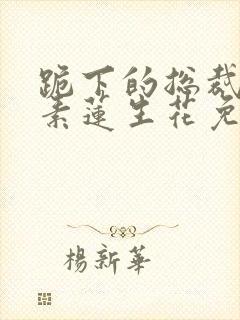 跪下的总裁
素莲生花免
楊新華